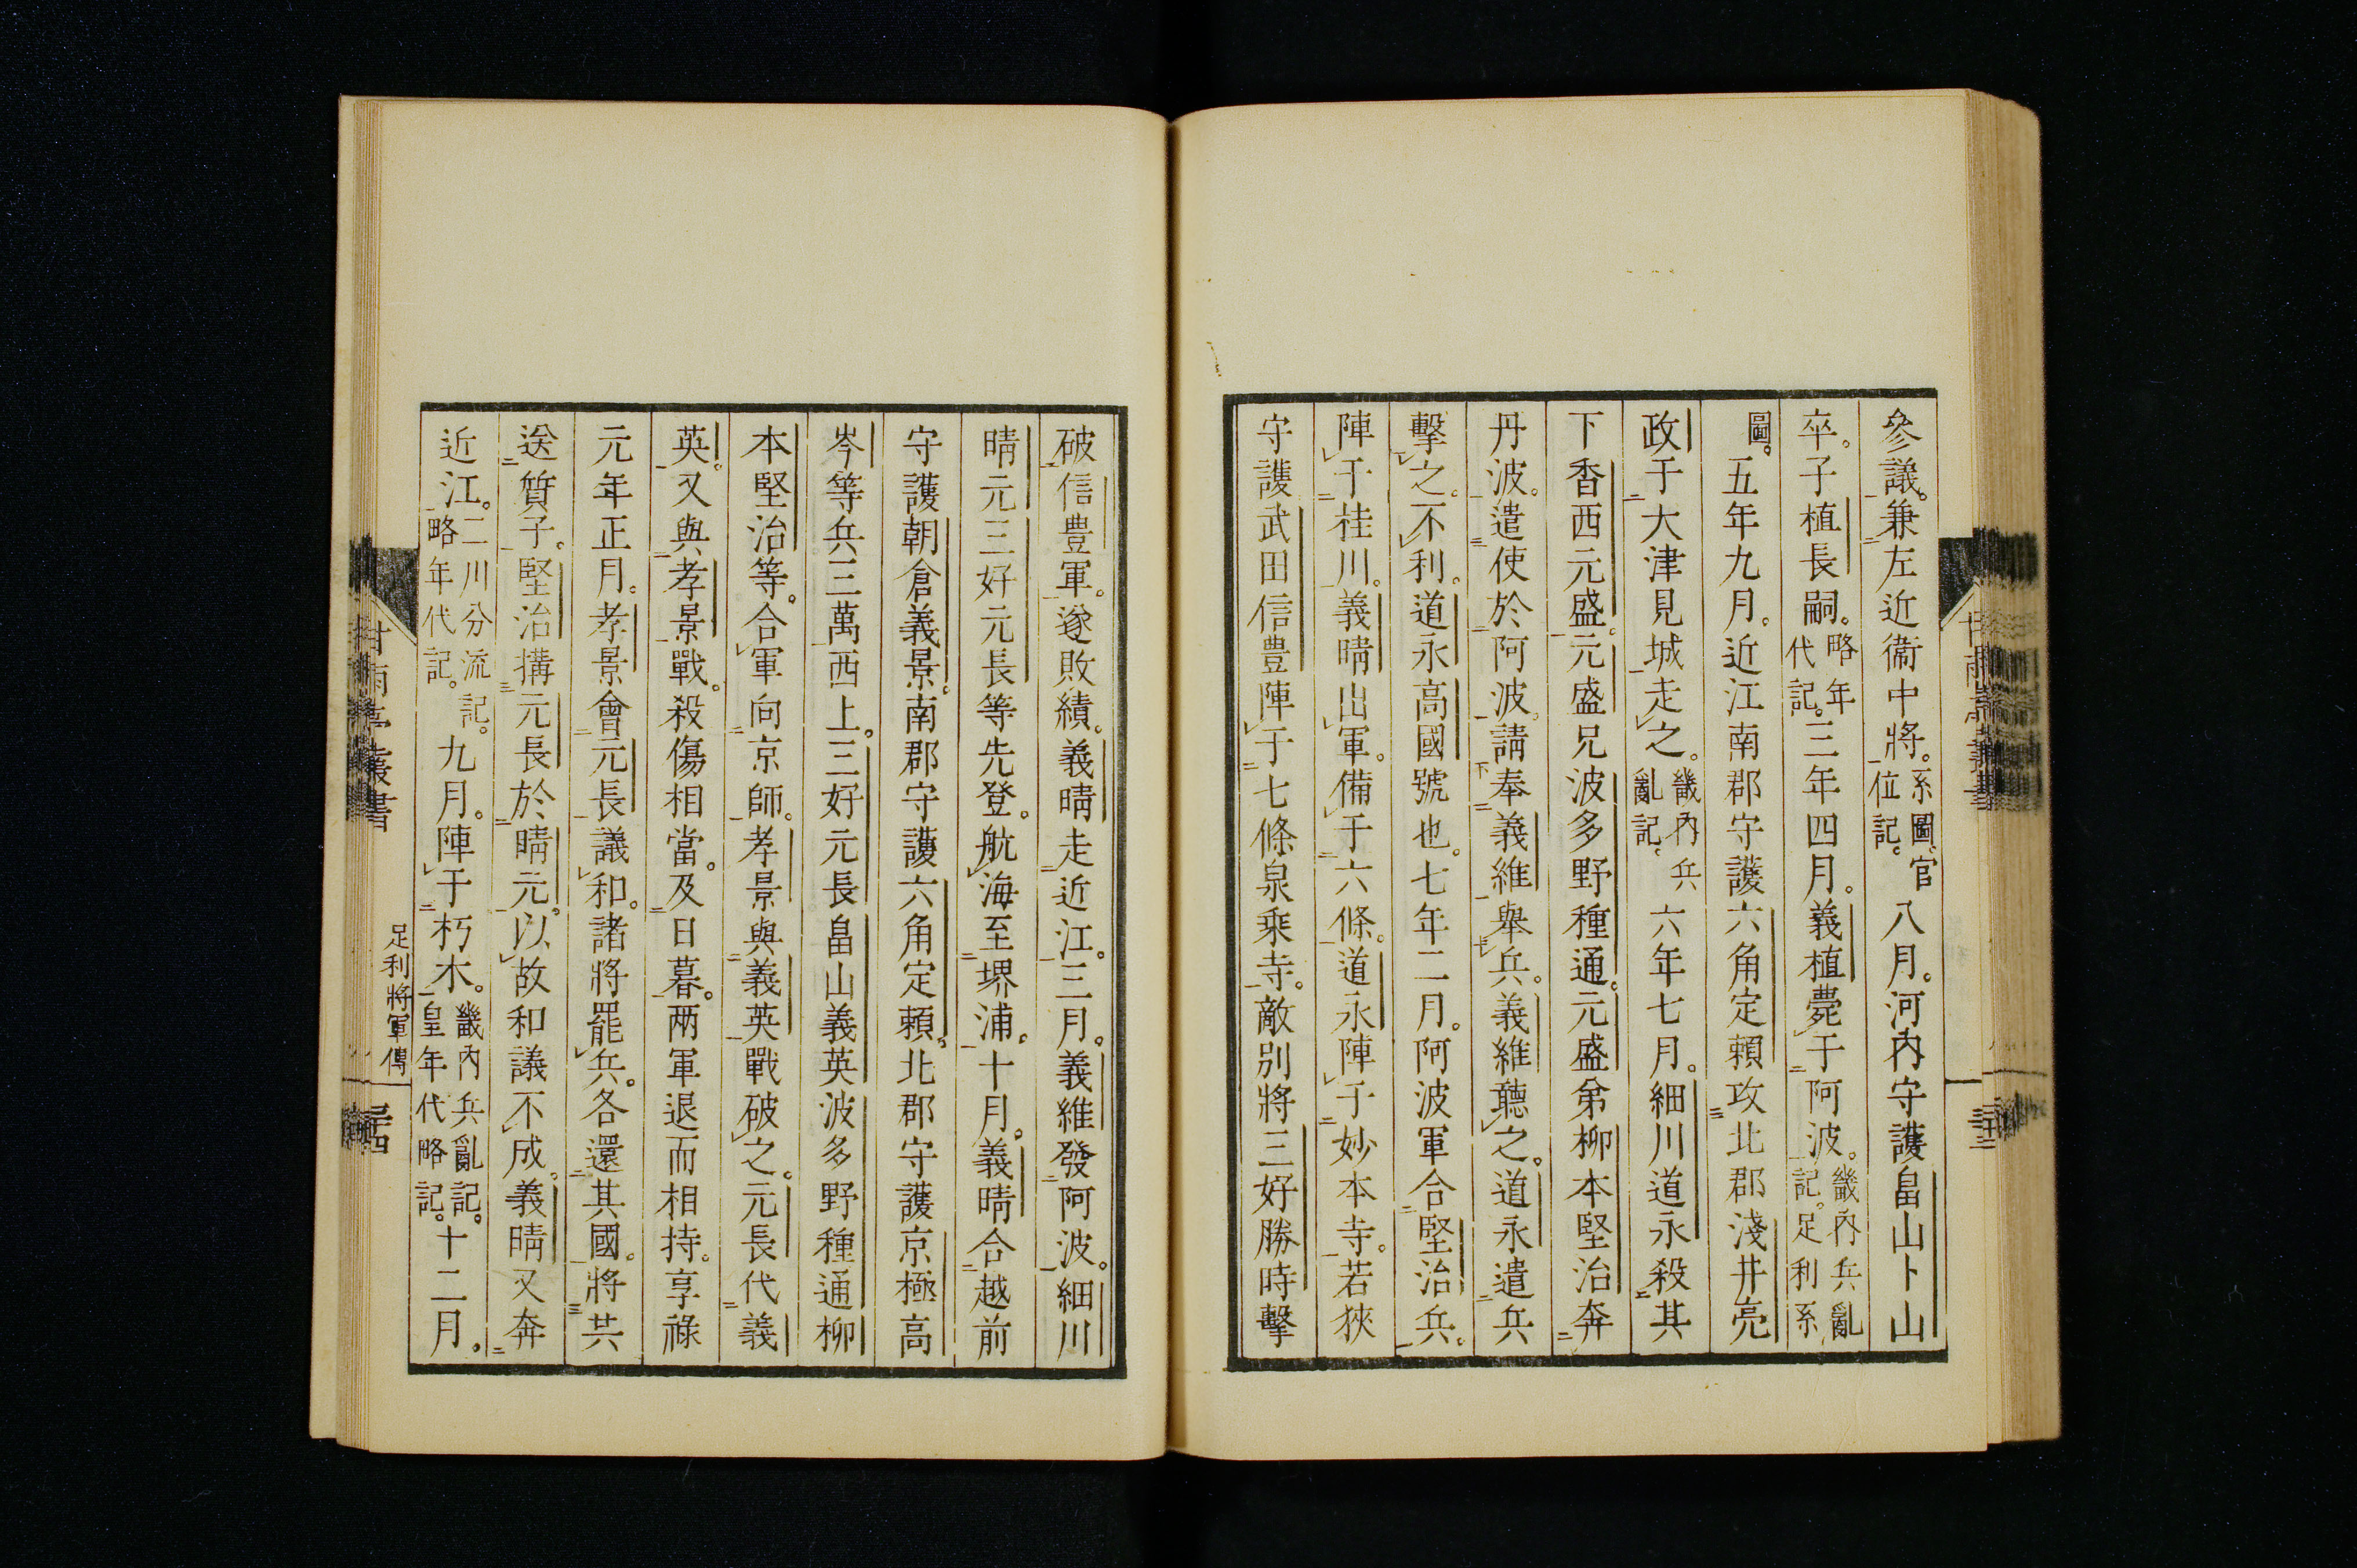 參議。兼左近衞中將。系圖。官位記。八月。河內守護畠山卜山
卒。子植長嗣。略年代記。三年四月。義植薨于阿波。畿內兵亂記。足利系
圖。五年九月。近江南郡守護六角定賴攻北郡淺井亮
政于大津見城走之。畿內兵亂記。六年七月。細川道永殺其
下香西元盛。元盛兄波多野種通。元盛弟柳本堅治奔
丹波。遣使於阿波。請奉義維舉兵。義維聽之。道永遣兵
擊之。不利。道永高國號也。七年二月。阿波軍合堅治兵。
陣于桂川。義晴出軍。備于六條。道永陣于妙本寺。若狹
守護武田信豊陣于七條泉乘寺。敵別將三好勝時擊
破信豊軍。遂敗績。義晴走近江。三月。義維發阿波。細川
晴元三好元長等先登。航海至堺浦。十月。義晴合越前
守護朝倉義景。南郡守護六角定賴。北郡守護京極高
岑等兵三萬西上。三好元長畠山義英波多野種通柳
本堅治等。合軍向京師。孝景與義英戰破之。元長代義
英。又與孝景戰。殺傷相當。及日暮。兩軍退而相持。享祿
元年正月。孝景會元長議和。諸將罷兵。各還其國。將共
送質子。堅治搆元長於晴元。以故和議不成。義晴又奔
近江。二川分流記。略年代記。九月。陣于朽木。畿內兵亂記。皇年代略記。十二月。
足利將軍傳
甘雨亭叢書